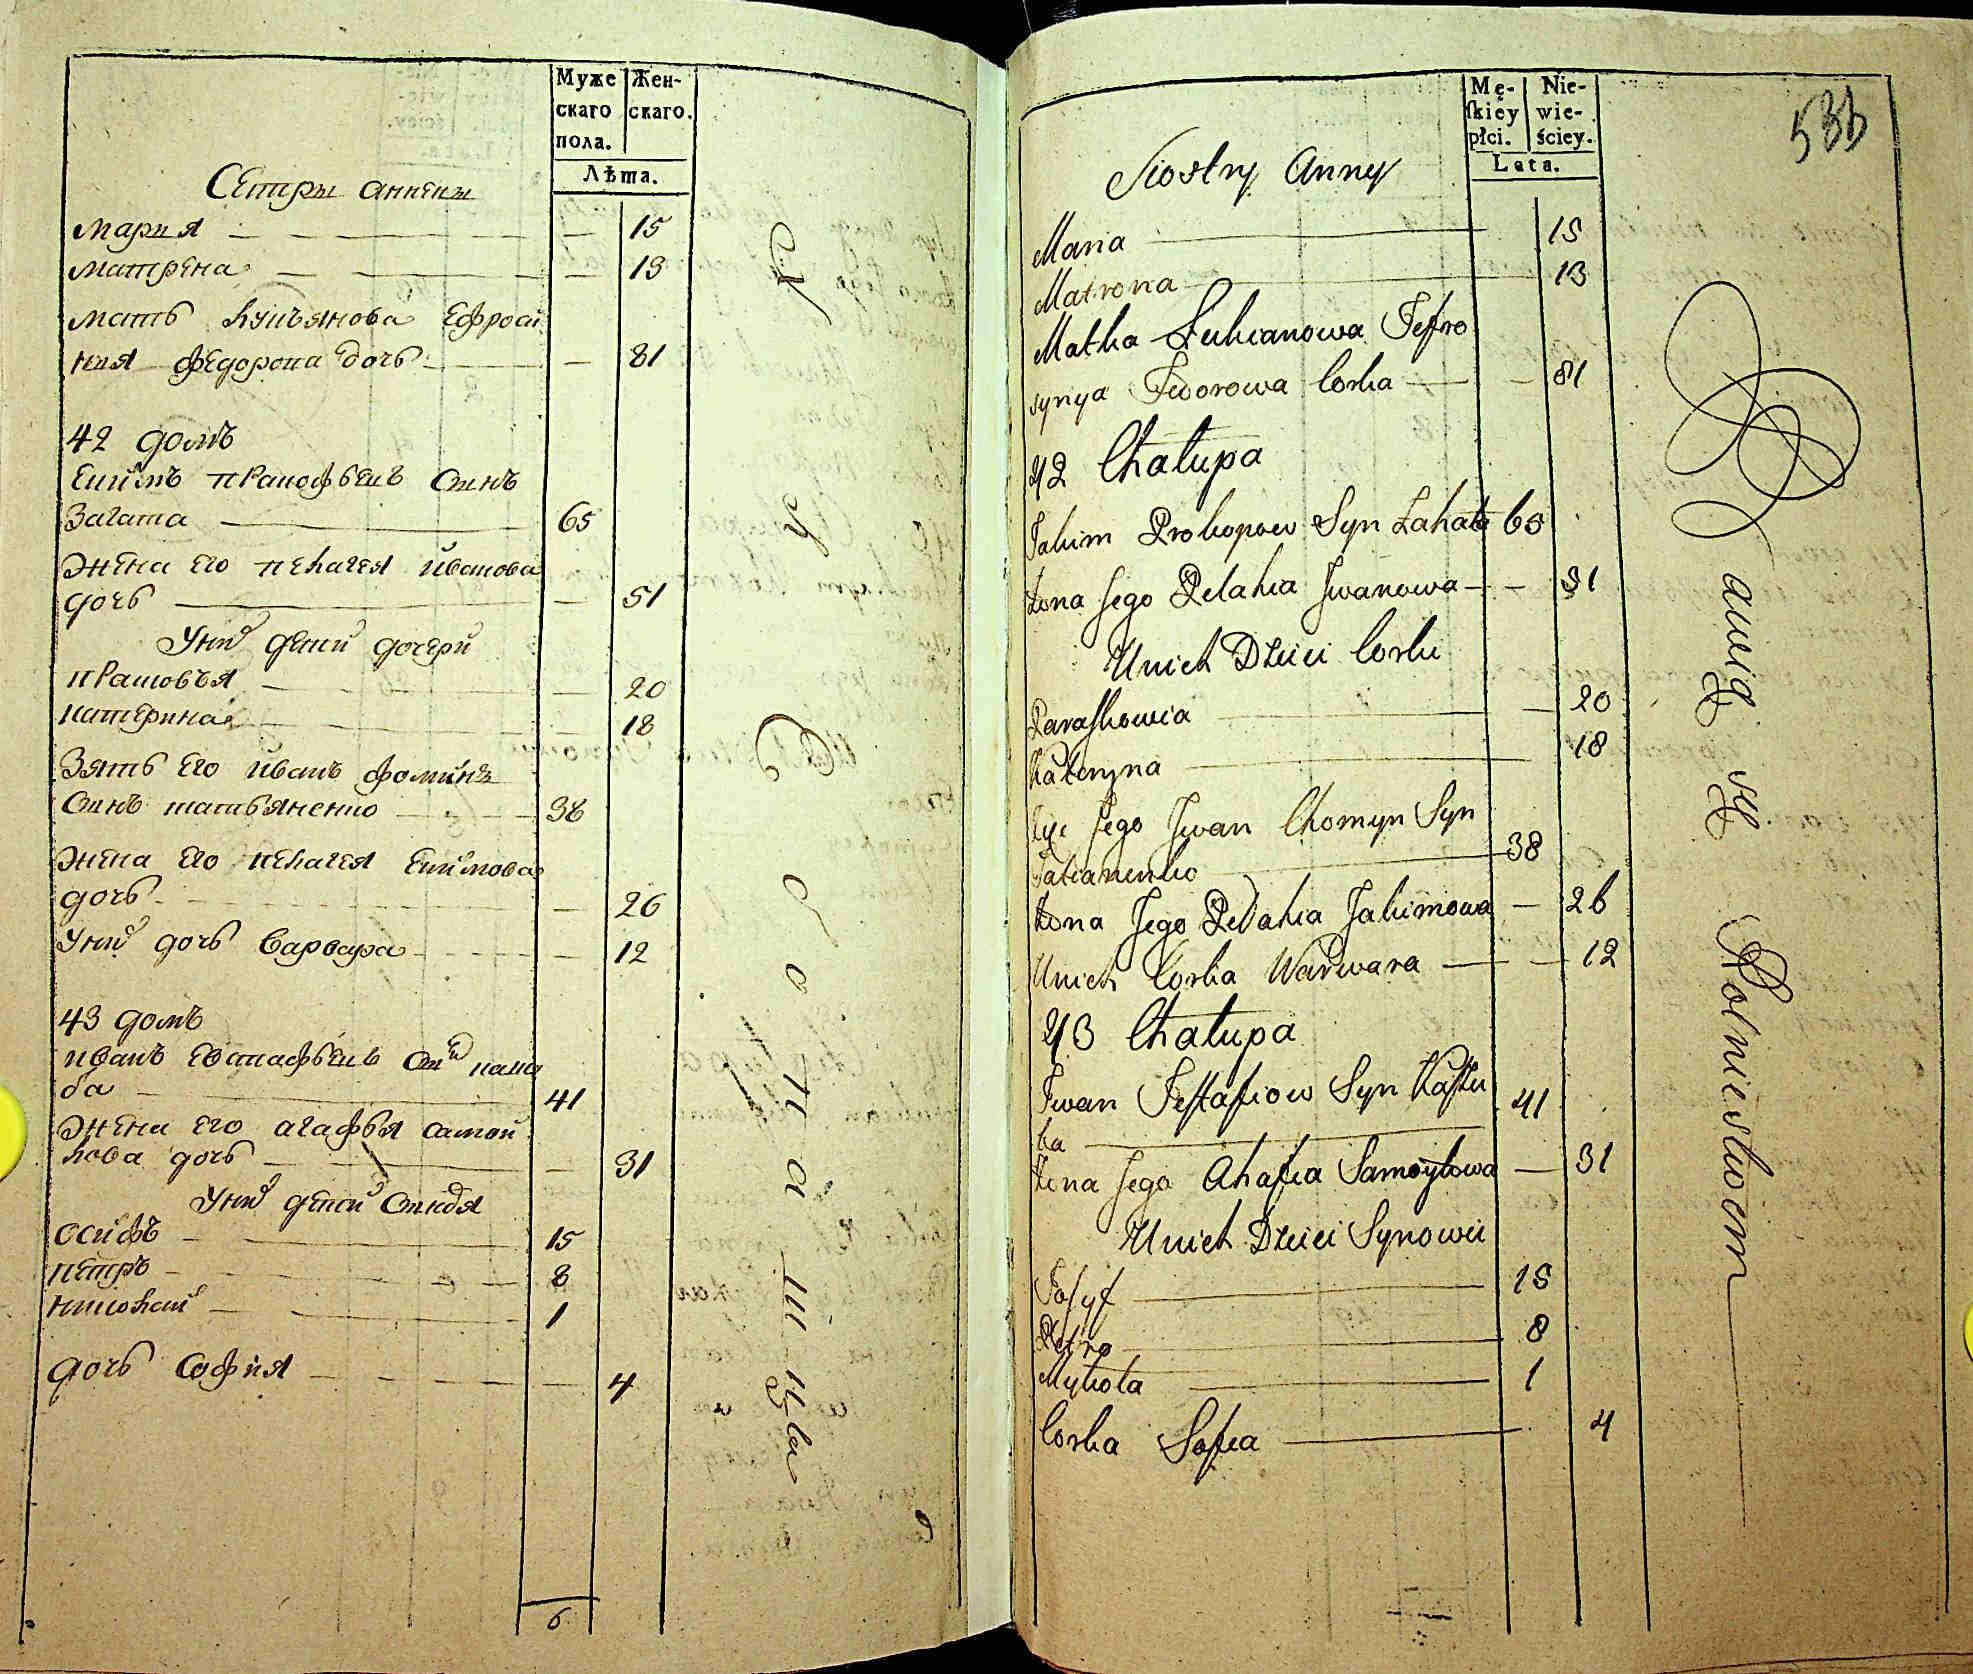 Муже
скаго
пола.
Жен-
скаго.
Лѣта.
Сестры аннены
Мария 15
Матрена 13
Мать Лукъянова Ефроси
ния Федорова дочь 81
42 домъ
Екимъ Прокофьевъ сынъ
Загата 65
Жена его пелагея иванова
дочь 51
У них дети дочери
прасковья 20
катерина 18
Зять его иванъ фоминъ
сынъ татьяненко 38
Жена его пелагея екимова
дочь 26
У них дочь варвара 12
43 домъ
иванъ евстафьевъ сын
ба 41
Жена его агафья самой
лова дочь 31
У них дети сыновья
осифъ 15
петръ 8
николай 1
дочь софия 4
6
Mę-
skiey
płci.
Nie-
wie-
ściey.
Lata.
538
Siostry Anny
Maria 15
Matrona 13
Matka Łukianowa Jefro
synya Fedorowa Corka 81
42 Chałupa
Jakim Prokopow Syn Zahata 65
Żona Jego Pelahia Jwanowa 51
Unich Dzieci Corki
Paraskowia 20
Kateryna 18
Jego Jwan Chomyn Syn
Tatianenko 38
Żona Jego Pelahia Jakimowa 26
Unich Corka Warwara 12
43 Chałupa
Jwan Jestafiow Syn
ba 41
Żona Jego Ahafia Samoyłowa 31
Unich Dzieci Synowie
Josyf 15
Petro 8
Mykoła 1
Corka Sofia 4